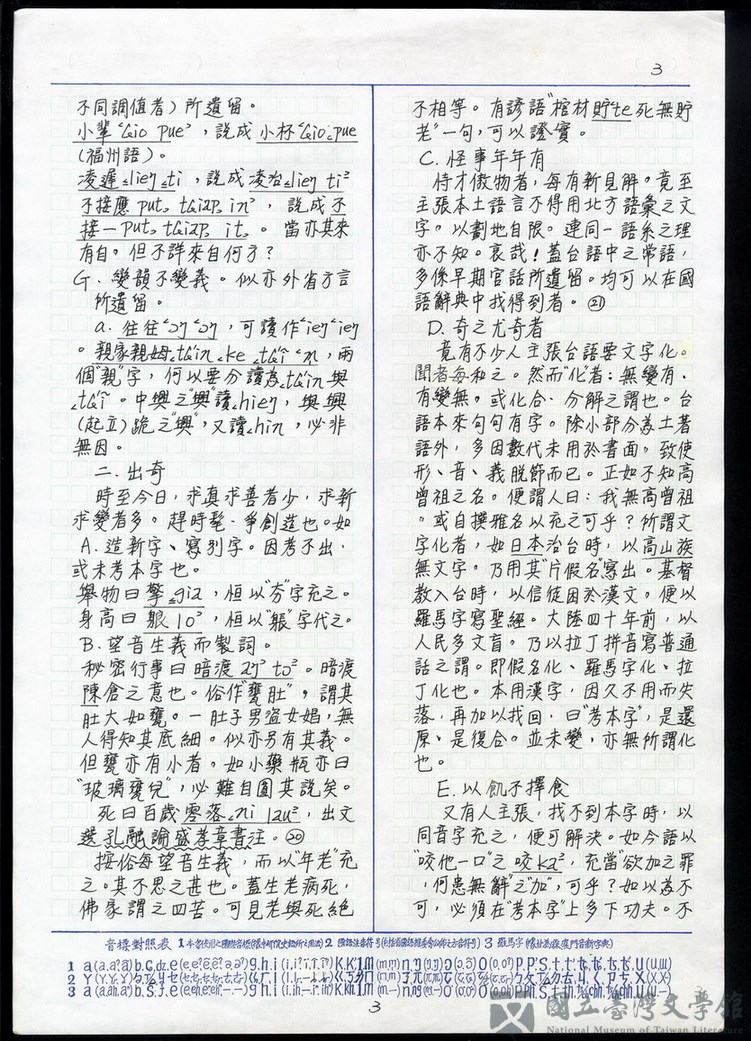 3
不同調值者）所遺留。
小輩 ʻtɕio pueʼ，説成小杯 ʻtɕio ꜀pue
（福州語）。
凌遲 ꜁lieŋ ꜁ti，説成凌治 ꜁lieŋ ti²
不接應 put꜆ tɕiap꜆ inʼ，説成不
接一 put꜆ tɕiap꜆ it꜆。當亦其來
有自。但不詳來自何方？
G. 變韻不變義。似亦外省方言
所遺留。
a. 往往 ʻɔŋ ʻɔŋ，可讀作 ʻieŋ ʻieŋ
。親家親姆
，兩
個“親”字，何以要分讀為 ꜀tɕʻin 與
。中興之“興”讀 ꜀hieŋ，與興
（起立）跪之“興”，又讀 ꜀hin，必非
無因。
二. 出奇
時至今日，求真求善者少，求新
求變者多。趕時髦．爭創造也。如
A. 造新字、寫別字。因考不出．
或未考本字也。
舉物曰擎 ꜁gia，恒以“夯”字充之。
身高曰躴 loʼ，恒以“躼”字代之。
B. 望音生義而製詞。
秘密行事曰暗渡 amʼ toʼ。暗渡
陳倉之意也。俗作“甕肚”，謂其
肚大如甕。一肚子男盜女娼，無
人得知其底細。似亦另有其義。
但甕亦有小者。如小藥瓶亦曰
“玻璃甕兒”，必難自圓其說矣。
死曰百歲零落 ꜀ni lauʼ，出文
選孔融論盛孝章書注。⑳
按俗每望音生義，而以“年老”充
之。其不思之甚也。蓋生老病死，
佛家謂之四苦。可見老與死絕
不相等。有諺語“棺材貯 ʻte 死無貯
老”一句，可以證實。
C. 怪事年年有
恃才傲物者，每有新見解。竟至
主張本土語言不得用北方語彙之文
字。以劃地自限。連同一語系之理
亦不知。哀哉！蓋台語中之常語，
多係早期官話所遺留。均可以在國
語辭典中找得到者。㉑
D. 奇之尤奇者
竟有不少人主張台語要文字化。
聞者每和之。然而“化”者：無變有．
有變無。或化合．分解之謂也。台
語本來句句有字。除小部分為土著
語外，多因數代未用於書面。致使
形、音、義脫節而已。正如不知高
曾祖之名。便謂人曰：我無高曾祖
。或自撰雅名以充之可乎？所謂文
字化者，如日本治台時，以高山族
無文字。乃用其“片假名”寫出。基督
教入台時，以信徒困於漢文。便以
羅馬字寫聖經。大陸四十年前，以
人民多文盲。乃以拉丁拼音寫普通
話之謂。即假名化、羅馬字化、拉
丁化也。本用漢字，因久不用而失
落，再加以找回，曰“考本字”，是還
原、是復合。並未變，亦無所謂化
也。
E. 以飢不擇食
又有人主張，找不到本字時，以
同音字充之，便可解決。如今語以
“咬他一口”之咬 kaʼ，充當“欲加之罪
，何患無辭”之“加”，可乎？如以為不
可，必須在“考本字”上多下功夫。不
音標對照表
3
國立臺灣文學館
National Museum of Taiwan Literature